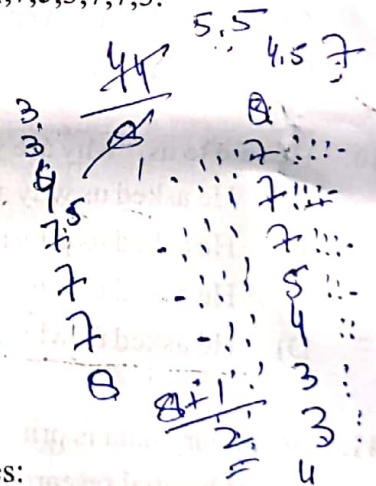 5.5
4.5 7
44
8
3
3
4
7
5
7
7
8
8
7
7
7
5
4
3
3
4
8+1
2
=
es: